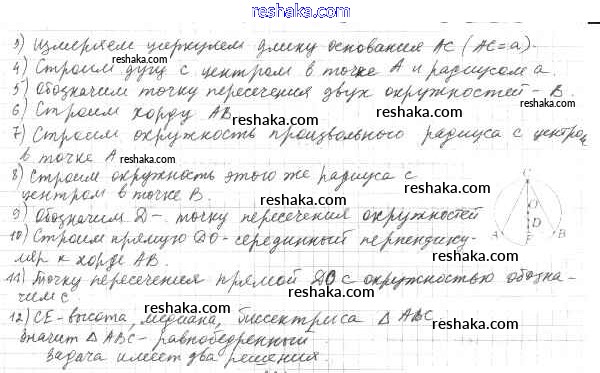 reshaka.com
3) Измеряем циркулем длину основания AC (AC=a).
reshaka.com
4) Строим дугу с центром в точке A и радиусом a.
5) Обозначим точку пересечения двух окружностей - B.
6) Строим хорду AB reshaka.com reshaka.com
7) Строим окружность произвольного радиуса с центром
в точке A reshaka.com
8) Строим окружность этого же радиуса с
центром в точке B. reshaka.com
9) Обозначим D - точку пересечения окружностей
10) Строим прямую DO - серединный перпендику-
ляр к хорде AB. reshaka.com reshaka.com
11) Точку пересечения прямой DO с окружностью обозна-
чим C reshaka.com
12) CE - высота, медиана, биссектриса △ ABC
Значит △ ABC - равнобедренный reshaka.com
Задача имеет два решения.
reshaka.com
C
O
D
A E B